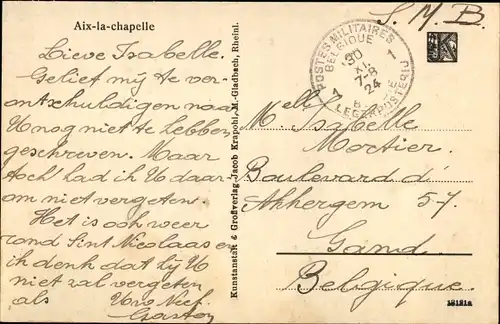 Aix-la-chapelle
S. M. B.
Lieve Isabelle.
Gelief mij te ver-
ontschuldigen naar
U nog niet te hebben
geschreven. Maar
toch had ik U daar-
om niet vergeten.
Het is ook weer
rond Sint Nicolaas en
ik denk dat hij U
niet zal vergeten
als Uw Nef.
Gaston
Kunstanstalt & Großverlag Jacob Krapohl, M.-Gladbach, Rheinl.
POSTES MILITAIRES
BELGIQUE
1 30 1
XI.
7-8
24
LEGERPOSTERIJ
Melle Isabelle
Mortier
Boulevard d'
Akkergem 57
Gand.
Belgique.
18181a